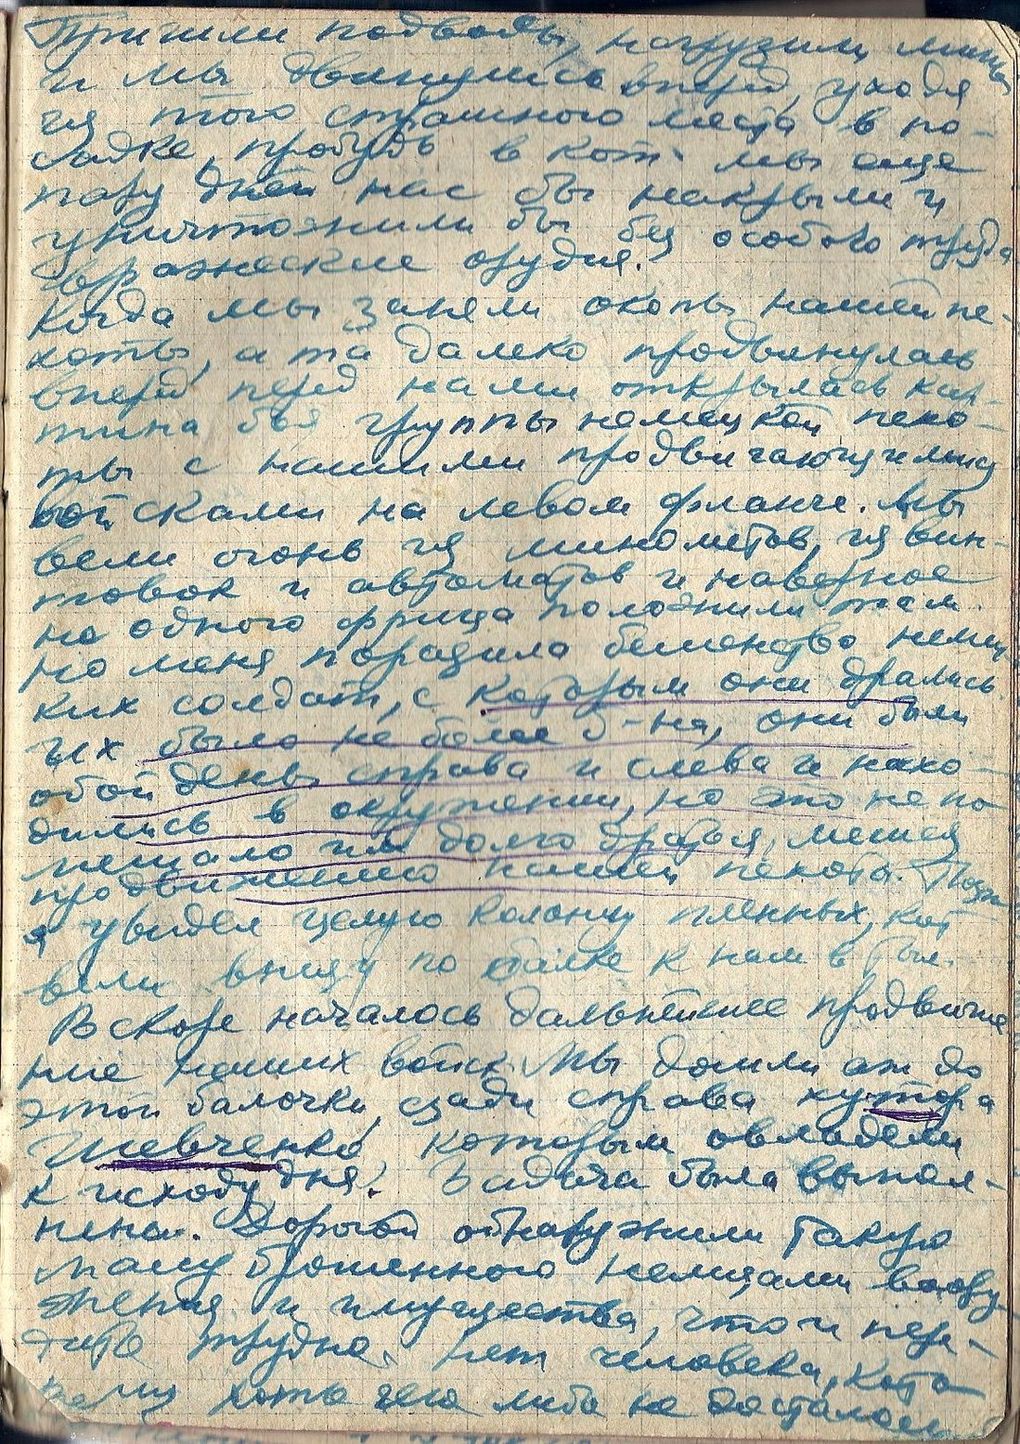 Пришли подводы, нагрузили мины
и мы двинулись вперед, уходя
из того страшного места в по-
садке, пробудь в кот. мы еще
пару дней нас бы накрыли и
уничтожили бы без особого труда
вражеские орудия.
Когда мы заняли окопы нашей пе-
хоты, а та далеко продвинулась
вперед, перед нами открылась кар-
тина боя группы немецкой пехо-
ты с нашими продвигающимися
войсками на левом фланге. Мы
вели огонь из минометов, из вин-
товок и автоматов и наверное
не одного фрица положили там.
Но меня поразила бешенство немец
ких солдат, с которым они дрались.
Их было не более 5-на, они были
обойдены справа и слева и нахо-
дились в окружении, но это не по
мешало им долго драться, мешая
продвижению нашей пехоты. Позже
я увидел целую колонну пленных, кот
вели внизу по балке к нам в тыл.
Вскоре началось дальнейшее продвиже
ние наших войск. Мы дошли аж до
этой балочки, сзади справа хутора
Шевченко, которым овладели
к исходу дня. Задача была выпол-
нена. Дорогой обнаружили такую
массу брошенного немцами воору-
жения и имущества, что и пере-
дать трудно. Нет человека, кото
рому хоть чего либо не досталось